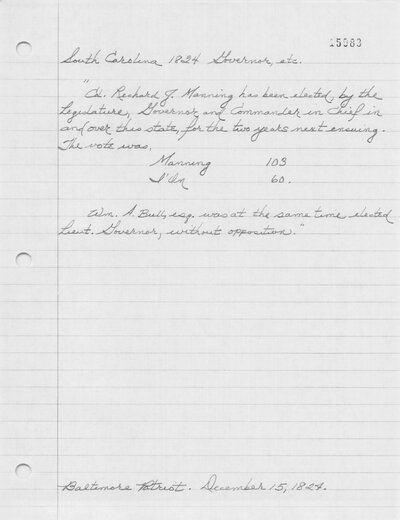 15083
South Carolina 1824 Governor, etc.
"Col. Richard J. Manning has been elected, by the
Legislature, Governor and Commander in Chief in
and over this state, for the two years next ensuing.
The vote was,
Manning 103
I'On 60.
Wm. A. Bull, esq. was at the same time elected
Lieut. Governor, without opposition."
Baltimore Patriot. December 15, 1824.